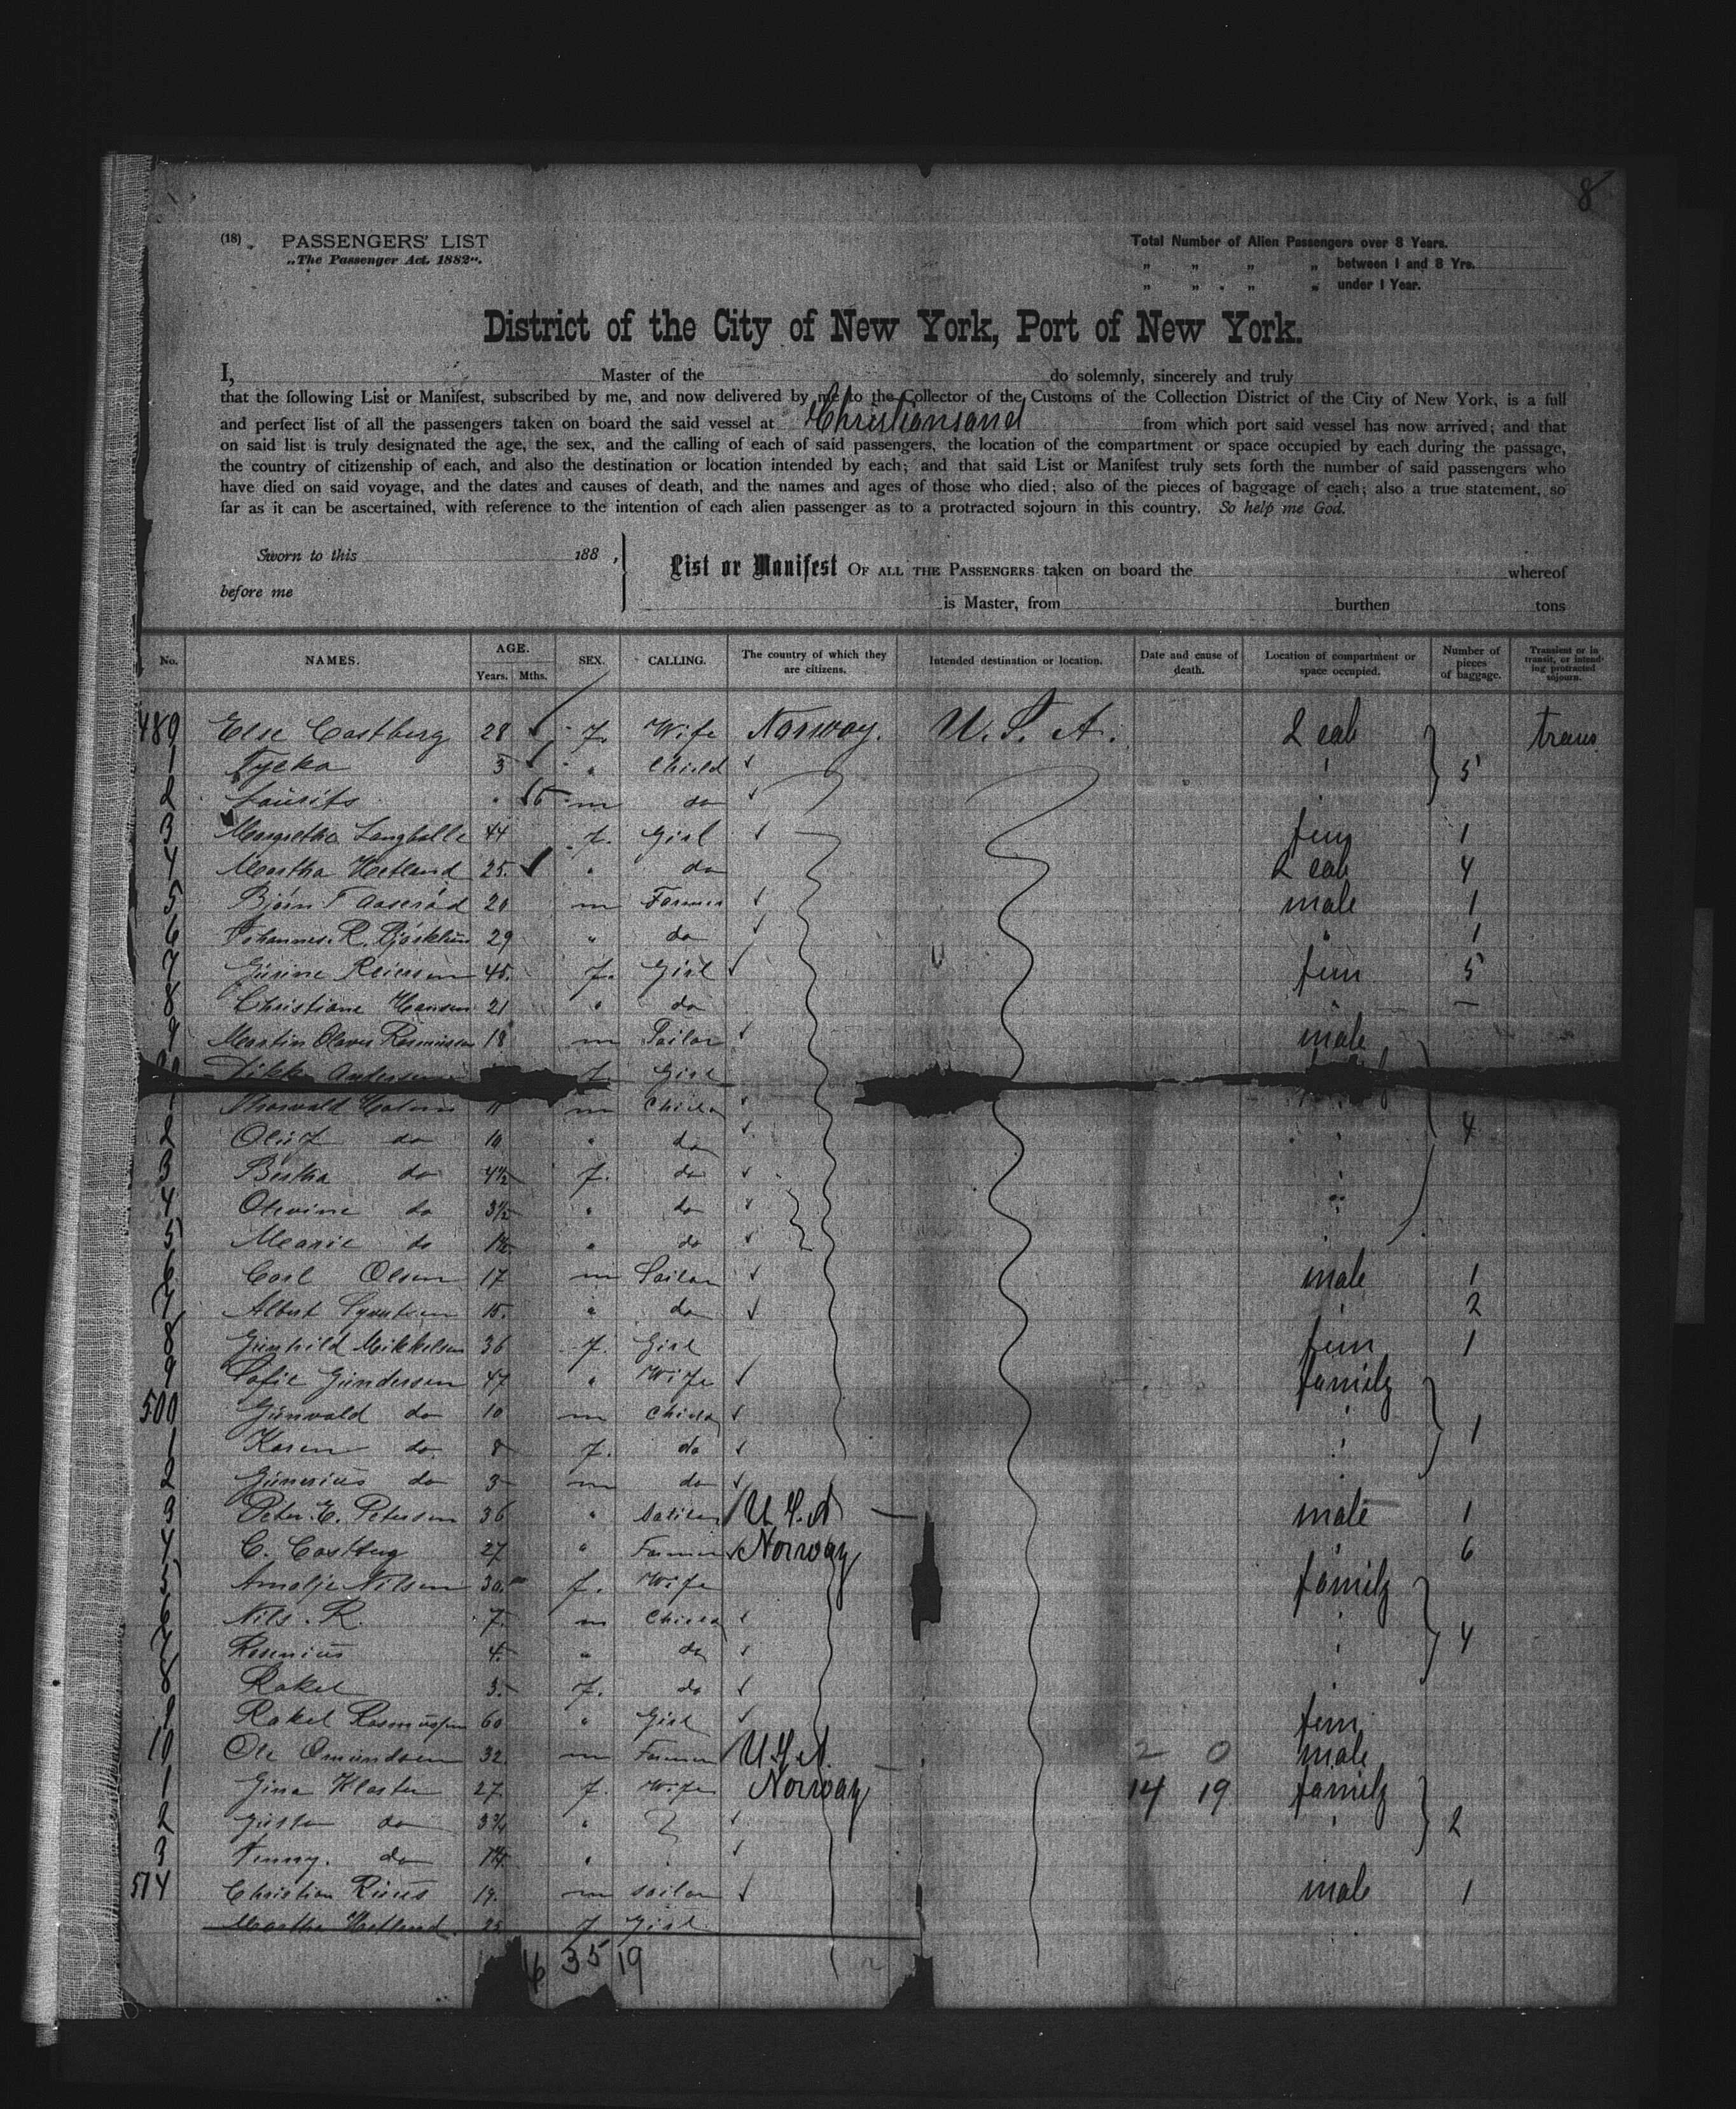 8
(18) PASSENGERS' LIST
„The Passenger Act. 1882".
Total Number of Alien Passengers over 8 Years.
„ „ „ „ between 1 and 8 Yrs.
„ „ „ „ under 1 Year.
District of the City of New York, Port of New York.
I, Master of the do solemnly, sincerely and truly
that the following List or Manifest, subscribed by me, and now delivered by me to the Collector of the Customs of the Collection District of the City of New York, is a full
and perfect list of all the passengers taken on board the said vessel at Christiansand from which port said vessel has now arrived; and that
on said list is truly designated the age, the sex, and the calling of each of said passengers, the location of the compartment or space occupied by each during the passage,
the country of citizenship of each, and also the destination or location intended by each; and that said List or Manifest truly sets forth the number of said passengers who
have died on said voyage, and the dates and causes of death, and the names and ages of those who died; also of the pieces of baggage of each; also a true statement, so
far as it can be ascertained, with reference to the intention of each alien passenger as to a protracted sojourn in this country. So help me God.
Sworn to this 188 ,
before me
List or Manifest OF ALL THE PASSENGERS taken on board the whereof
is Master, from burthen tons
No. NAMES. AGE. Years. Mths. SEX. CALLING. The country of which they are citizens. Intended destination or location. Date and cause of death. Location of compartment or space occupied. Number of pieces of baggage. Transient or in transit, or intending protracted sojourn.
480 Else Castberg 28 f. Wife Norway. U. S. A. 2 cab trans
1 3 " Child 5
2 Laurits m do
3 Margretha 44 f. Girl fem 1
4 Martha Hetland 25. " do 2 cab 4
5 Bjørn 20 m Farmer male 1
6 Johannes. R. 29 " do " 1
7 45. f. Girl fem 5
8 Christiane Hansen 21 " do " —
9 Martin Olaves Rasmussen 18 m male
Andersen f Girl
m Child
2 do 10 " do 4
3 Bertha do 4½ f. do
4 do 3½ " do
5 Marie do " do
6 Carl Olsen 17 m Sailor male 1
7 Albert 15. " do 2
8 Gunhild Mikkelsen 36 f. Girl fem 1
9 Sofie Gundersen 47 " Wife family
500 Gunvald do 10 m Child 1
1 Karen do 8 f. do
2 do 3 m do
3 Peter. E. Petersen 36 " U.S.A male 1
4 C. 27 " Farmer Norway " 6
5 Nilsen 30. f. Wife family
6 Nils. R. 7. m Child
7 4. " do 4
8 Rakel 3. f. do
9 Rakel 60 " Girl fem
10 Ole Omundsen 32. m Farmer U.S.A. 2 0 male
1 Gina 27. f. Wife Norway 14 19 family
2 do " 2
3 do "
514 Christian 19. m sailor male 1
Martha Hetland. 25 f Girl.
35 19